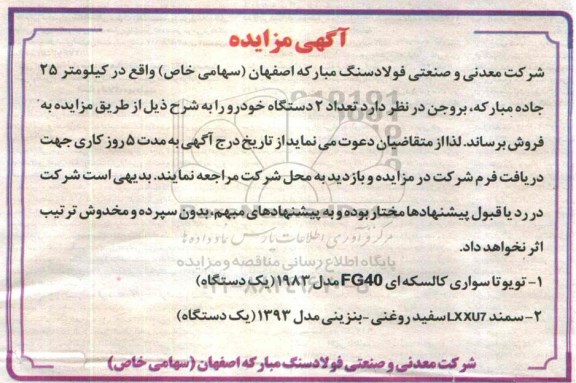 آگهی مزایده
شرکت معدنی و صنعتی فولادسنگ مبارکه اصفهان (سهامی خاص) واقع در کیلومتر ۲۵
جاده مبارکه، بروجن در نظر دارد تعداد ۲ دستگاه خودرو را به شرح ذیل از طریق مزایده به
فروش برساند. لذا از متقاضیان دعوت می نماید از تاریخ درج آگهی به مدت ۵ روز کاری جهت
دریافت فرم شرکت در مزایده و بازدید به محل شرکت مراجعه نمایند. بدیهی است شرکت
در رد یا قبول پیشنهادها مختار بوده و به پیشنهادهای مبهم، بدون سپرده و مخدوش ترتیب
مرکز فرآوری اطلاعات پارس نماد داده ها
اثر نخواهد داد.
پایگاه اطلاع رسانی مناقصه و مزایده
۱- تویوتا سواری کالسکه ای FG40 مدل ۱۹۸۳ (یک دستگاه)
۲- سمند LXXU7 سفید روغنی -بنزینی مدل ۱۳۹۳ (یک دستگاه)
شرکت معدنی و صنعتی فولادسنگ مبارکه اصفهان (سهامی خاص)